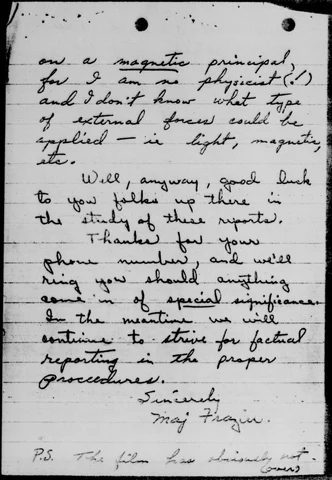 on a magnetic principal,
for I am no physicist (!)
and I don't know what type
of external forces could be
applied — ie light, magnetic,
etc.
Well, anyway, good luck
to you folks up there in
the study of these reports.
Thanks for your
phone number, and we'll
ring you should anything
come in of special significance.
In the meantime we will
continue to strive for factual
reporting in the proper
proccedures.
Sincerely
Maj Frazier.
P.S. The film has obviously not.
(over)